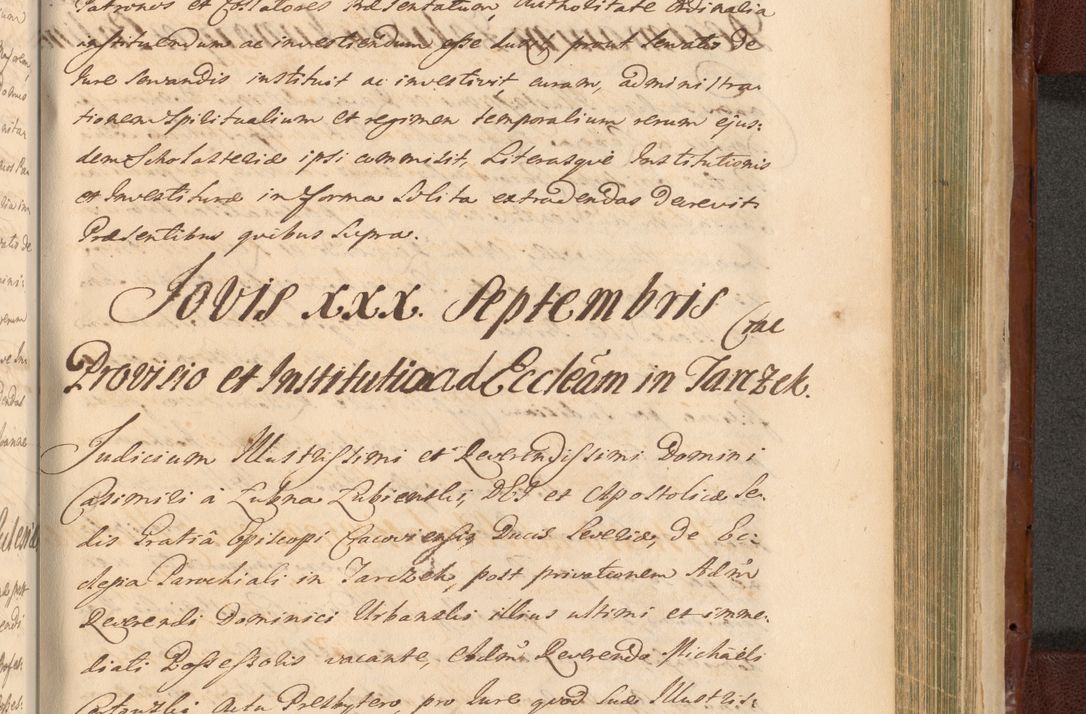 Patronos et Collatores Præsentatum, Authoritate Ordinaria
instituendum ac investiendum esse duxit prout servatis de
Jure servandis instituit ac investivit, curam, administra-
tionem Spiritualium et regimen temporalium rerum ejus:
dem Scholasteriæ ipsi commisit, Literasque Institutionis
et Investituræ in forma solita extradendas decrevit
Præsentibus quibus supra.
Jovis xxx. Septembris
Crac
Provisio et Institutio ad Eccleãm in Tarczek.
Judicium Illustrissimi et Reverendissimi Domini
Casimiri à Lubna Lubienski, DEI et Apostolicæ Se-
dis Gratiâ Episcopi Cracoviensis, Ducis Severiæ, de Ec:
clesia Parochiali in Tarczek, post privationem Admi
Reverendi Dominici Urbanski illius ultimi et imme:
diati Possessoris vacante, Admi Reverendo Michaeli
Actu Presbytero, pro Jure quod Suæ Illustris: